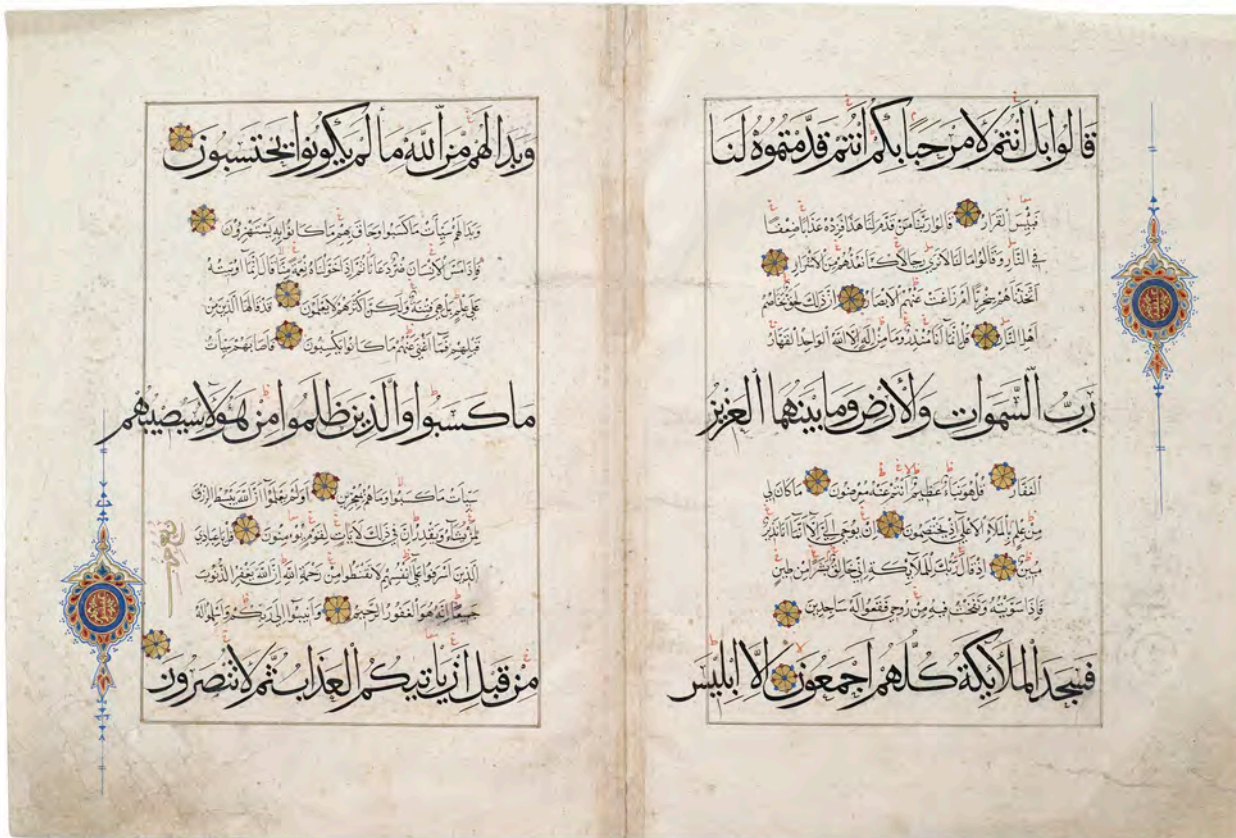 قالوا بل أنتم لا مرحبا بكم أنتم قدمتموه لنا
فبئس القرار قالوا ربنا من قدم لنا هذا فزده عذابا ضعفا
في النار وقالوا ما لنا لا نرى رجالا كنا نعدهم من الأشرار
أتخذناهم سخريا أم زاغت عنهم الأبصار إن ذلك لحق تخاصم
أهل النار قل إنما أنا منذر وما من إله إلا الله الواحد القهار
رب السموات والأرض وما بينهما العزيز
الغفار قل هو نبأ عظيم أنتم عنه معرضون ما كان لي
من علم بالملأ الأعلى إذ يختصمون إن يوحى إلي إلا أنما أنا نذير
مبين إذ قال ربك للملائكة إني خالق بشرا من طين
فإذا سويته ونفخت فيه من روحي فقعوا له ساجدين
فسجد الملائكة كلهم أجمعون إلا إبليس
وبدا لهم من الله ما لم يكونوا يحتسبون
وبدا لهم سيئات ما كسبوا وحاق بهم ما كانوا به يستهزؤن
فإذا مس الإنسان ضر دعانا ثم إذا خولناه نعمة منا قال إنما أوتيته
على علم بل هي فتنة ولكن أكثرهم لا يعلمون قد قالها الذين من
قبلهم فما أغنى عنهم ما كانوا يكسبون فأصابهم سيئات
ما كسبوا والذين ظلموا من هؤلاء سيصيبهم
سيئات ما كسبوا وما هم بمعجزين أولم يعلموا أن الله يبسط الرزق
لمن يشاء ويقدر إن في ذلك لآيات لقوم يؤمنون قل يا عبادي
الذين أسرفوا على أنفسهم لا تقنطوا من رحمة الله إن الله يغفر الذنوب
جميعا إنه هو الغفور الرحيم وأنيبوا إلى ربكم وأسلموا له
من قبل أن يأتيكم العذاب ثم لا تنصرون